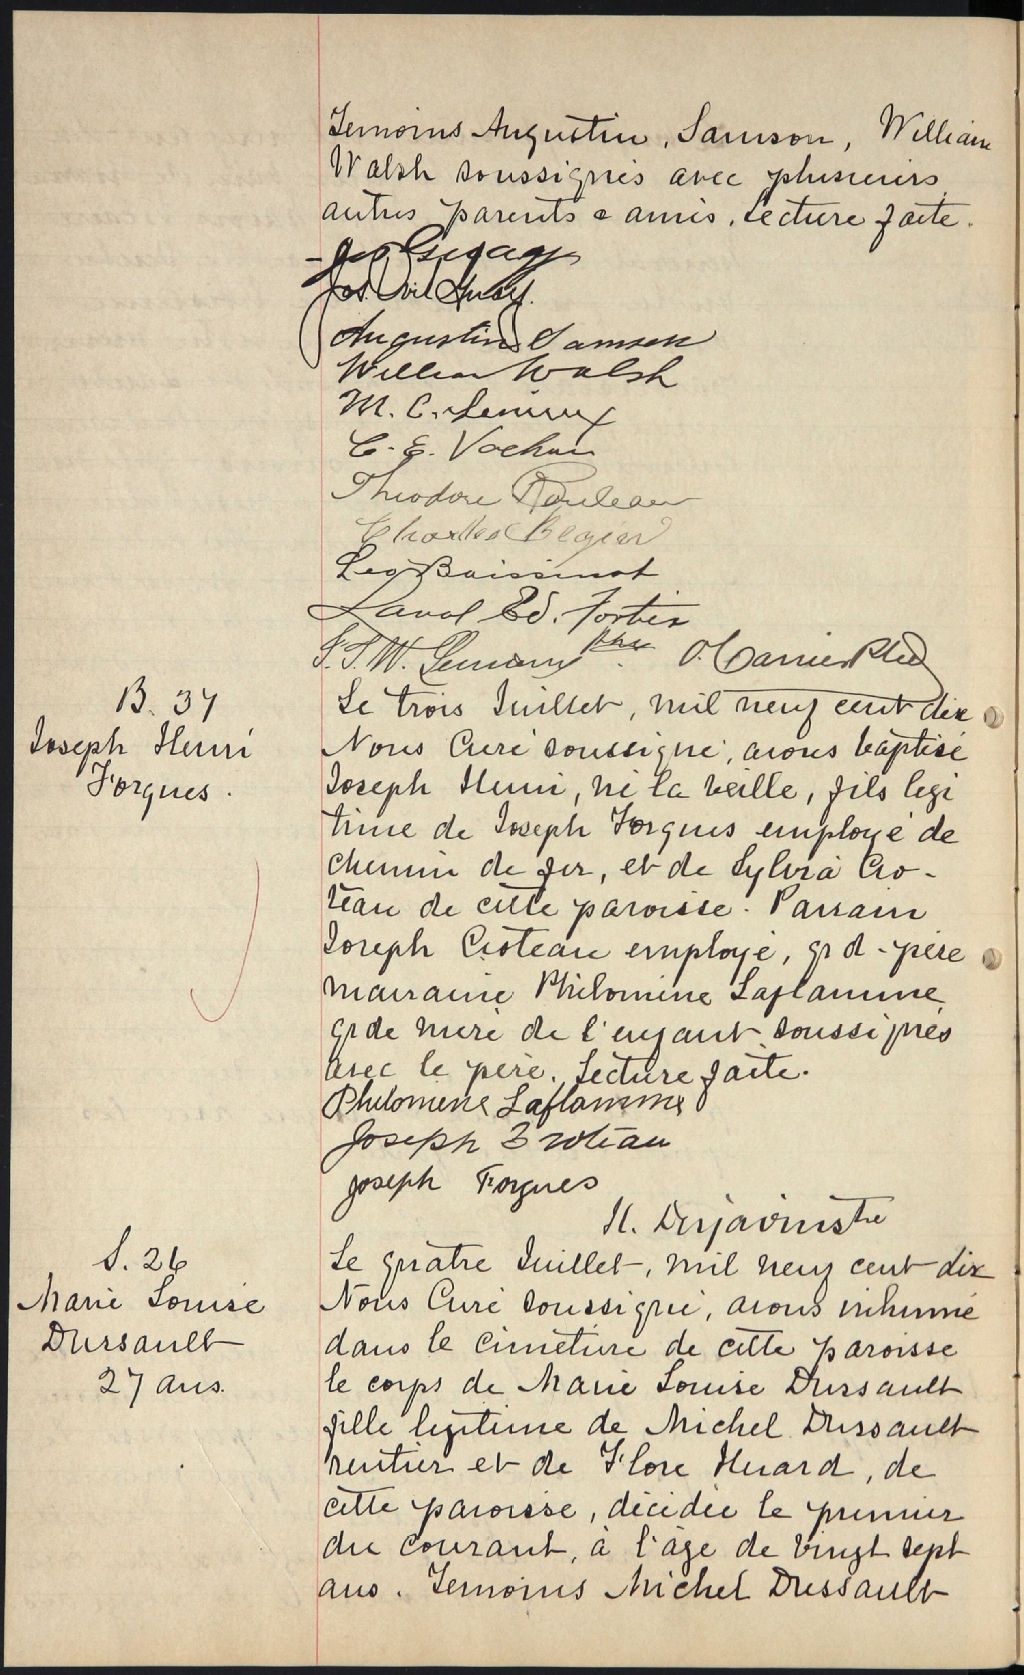 Temoins Augustin, Samson, William
Walsh soussignés avec plusieurs
autres parents & amis. Lecture faite.
Augustin Samson
William Walsh
M. C. Lemieux
C. E. Vachon
Theodore Rouleau
Charles Begin
Leo Boissinot
Laval Ed. Fortier
O. Carrier Ptre
B. 37
Joseph Henri
Forgues.
Le trois Juillet, mil neuf cent dix
Nous Curé soussigné, avons baptisé
Joseph Henri, né la veille, fils legi
time de Joseph Forgues employé de
chemin de fer, et de Sylvia Cro-
teau de cette paroisse. Parrain
Joseph Croteau employé, grd-père
marraine Philomène Laflamme
grde mère de l'enfant soussignés
avec le père. Lecture faite.
Philomene Laflamme
Joseph Croteau
Joseph Forgues
S. 26
Marie Louise
Dussault
27 ans.
Le quatre Juillet, mil neuf cent dix
Nous Curé soussigné, avons inhumé
dans le cimetière de cette paroisse
le corps de Marie Louise Dussault
fille legitime de Michel Dussault
rentier et de Flore Huard, de
cette paroisse, décédée le premier
du courant, à l'âge de vingt sept
ans. Temoins Michel Dussault